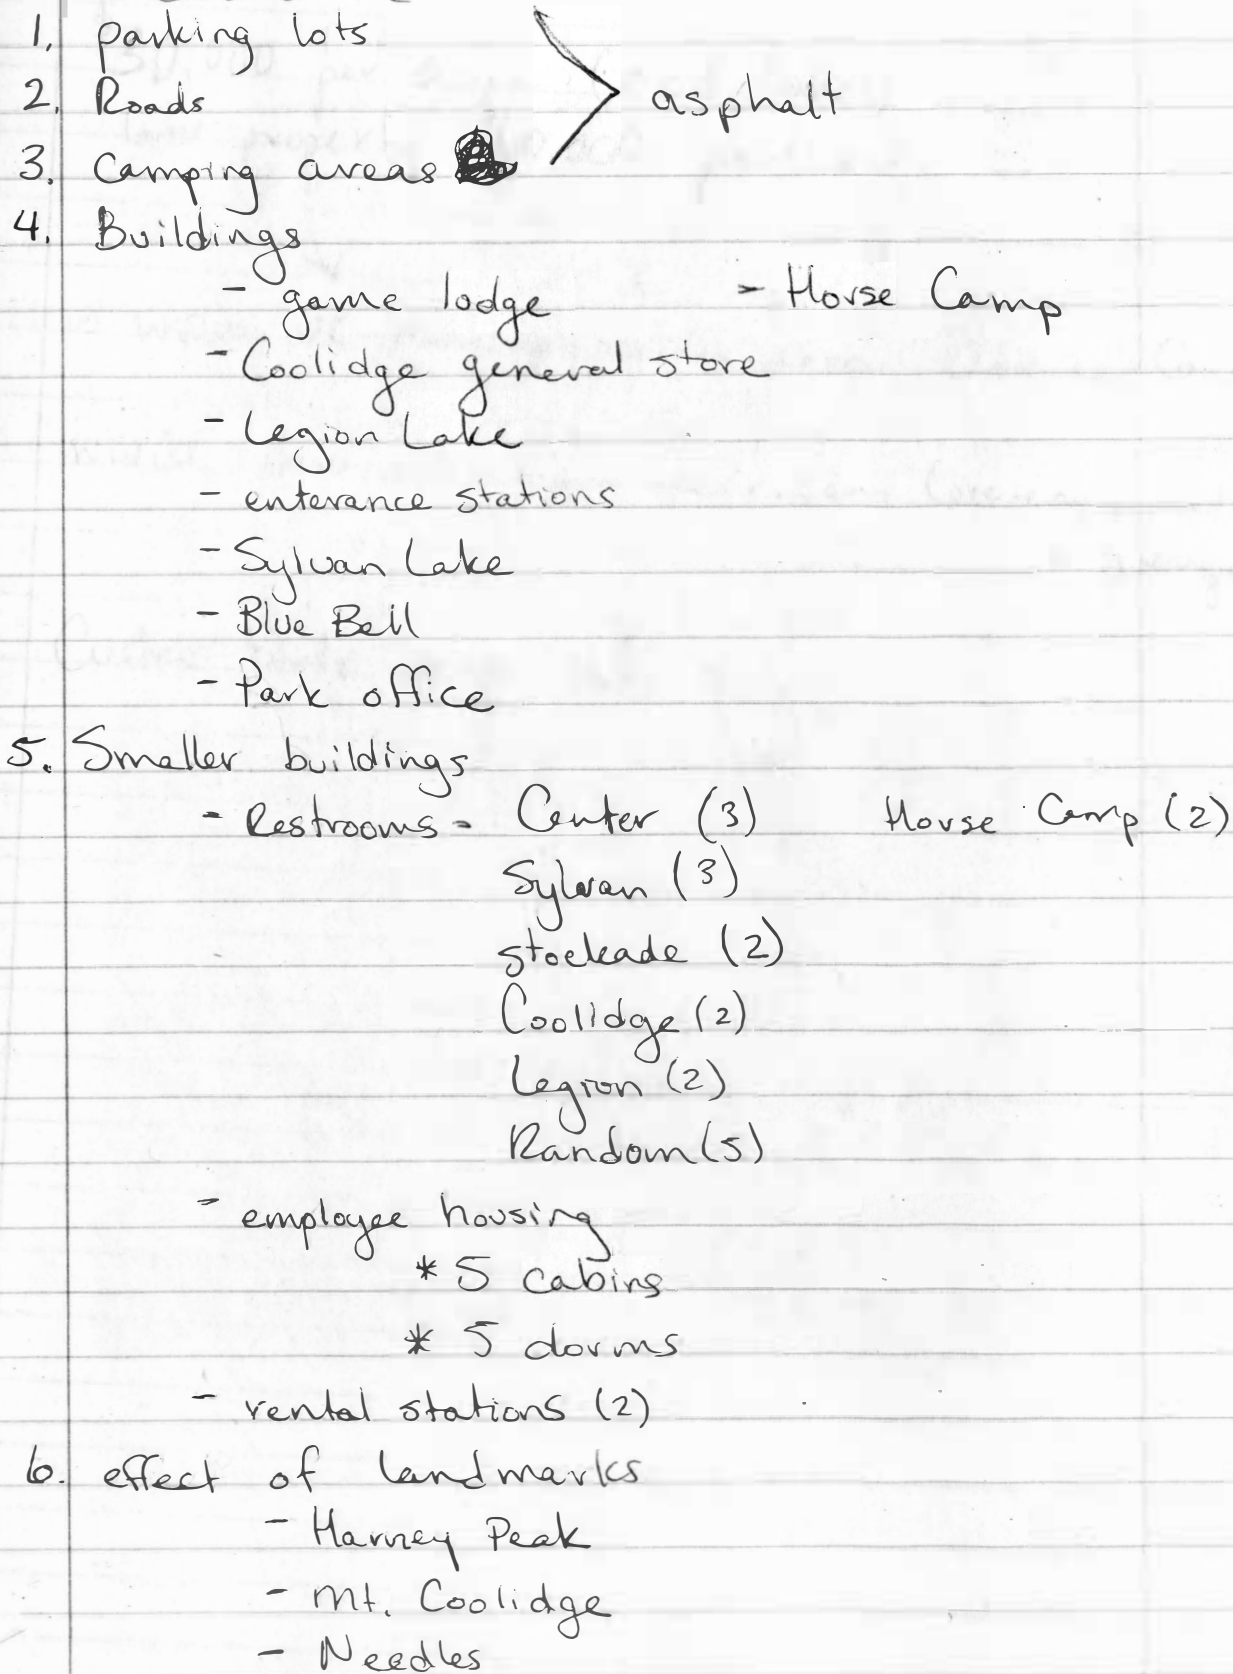 1. parking lots
2. Roads
asphalt
3. Camping areas
4. Buildings
- game lodge - Horse Camp
- Coolidge general store
- Legion Lake
- enterance stations
- Sylvan Lake
- Blue Bell
- Park office
5. Smaller buildings
- Restrooms - Center (3) Horse Camp (2)
Sylvan (3)
stockade (2)
Coolidge (2)
Legion (2)
Random (5)
- employee housing
* 5 cabins
* 5 dorms
- rental stations (2)
6. effect of landmarks
- Harney Peak
- Mt. Coolidge
- Needles